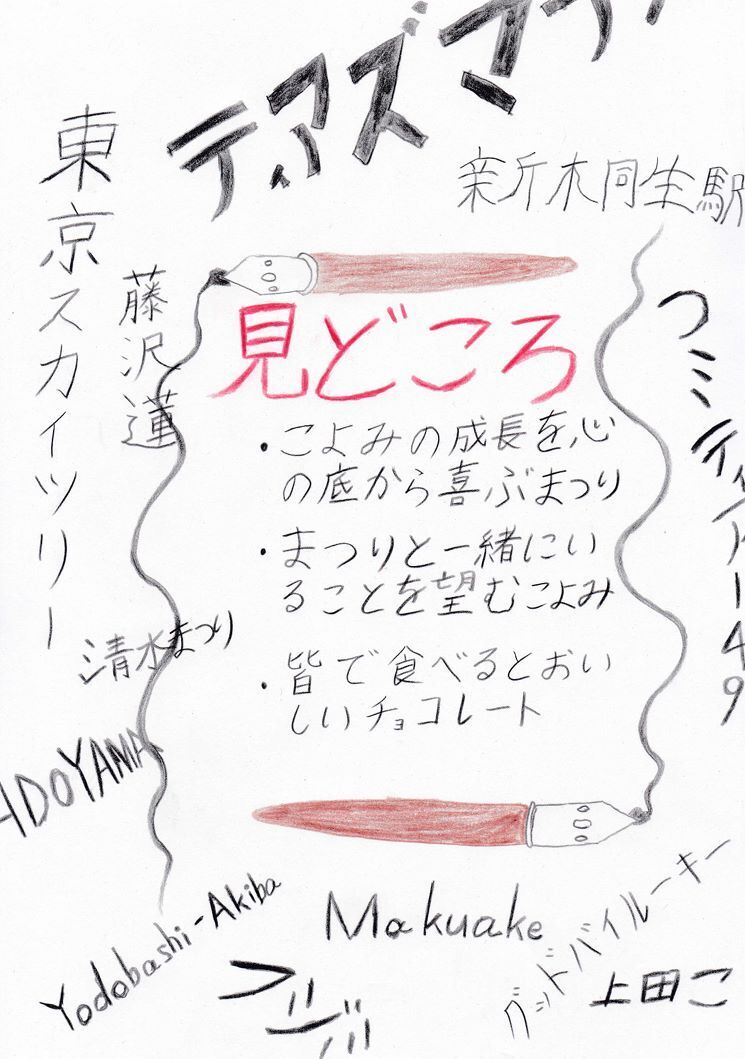 ティアズマ
東京スカイツリー
藤沢蓮
新桐生駅
コミティア149
見どころ
・こよみの成長を心
の底から喜ぶまつり
・まつりと一緒にい
ることを望むこよみ
・皆で食べるとおい
しいチョコレート
清水まつり
ADOYAMA
Yodobashi-Akiba
Makuake
グッドバイルーキー
上田こ